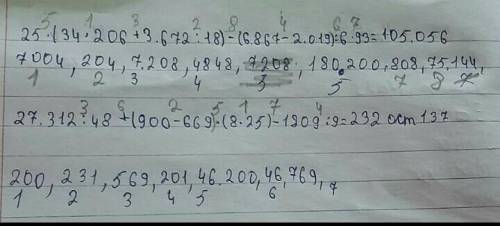 5 1 3 2 8 4 6 7
25·(34·206+3.672:18)-(6.867-2.019):6·93=105.056
7004, 204, 7.208, 4848, 7208, 180.200, 808, 75.144,
1 2 3 4 3 5 7 8 7
3 6 2 5 1 7 4
27.312:48+(900-669)·(8·25)-1209:9=232 ост 137
200, 231, 569, 201, 46.200, 46,769, 7
1 2 3 4 5 6